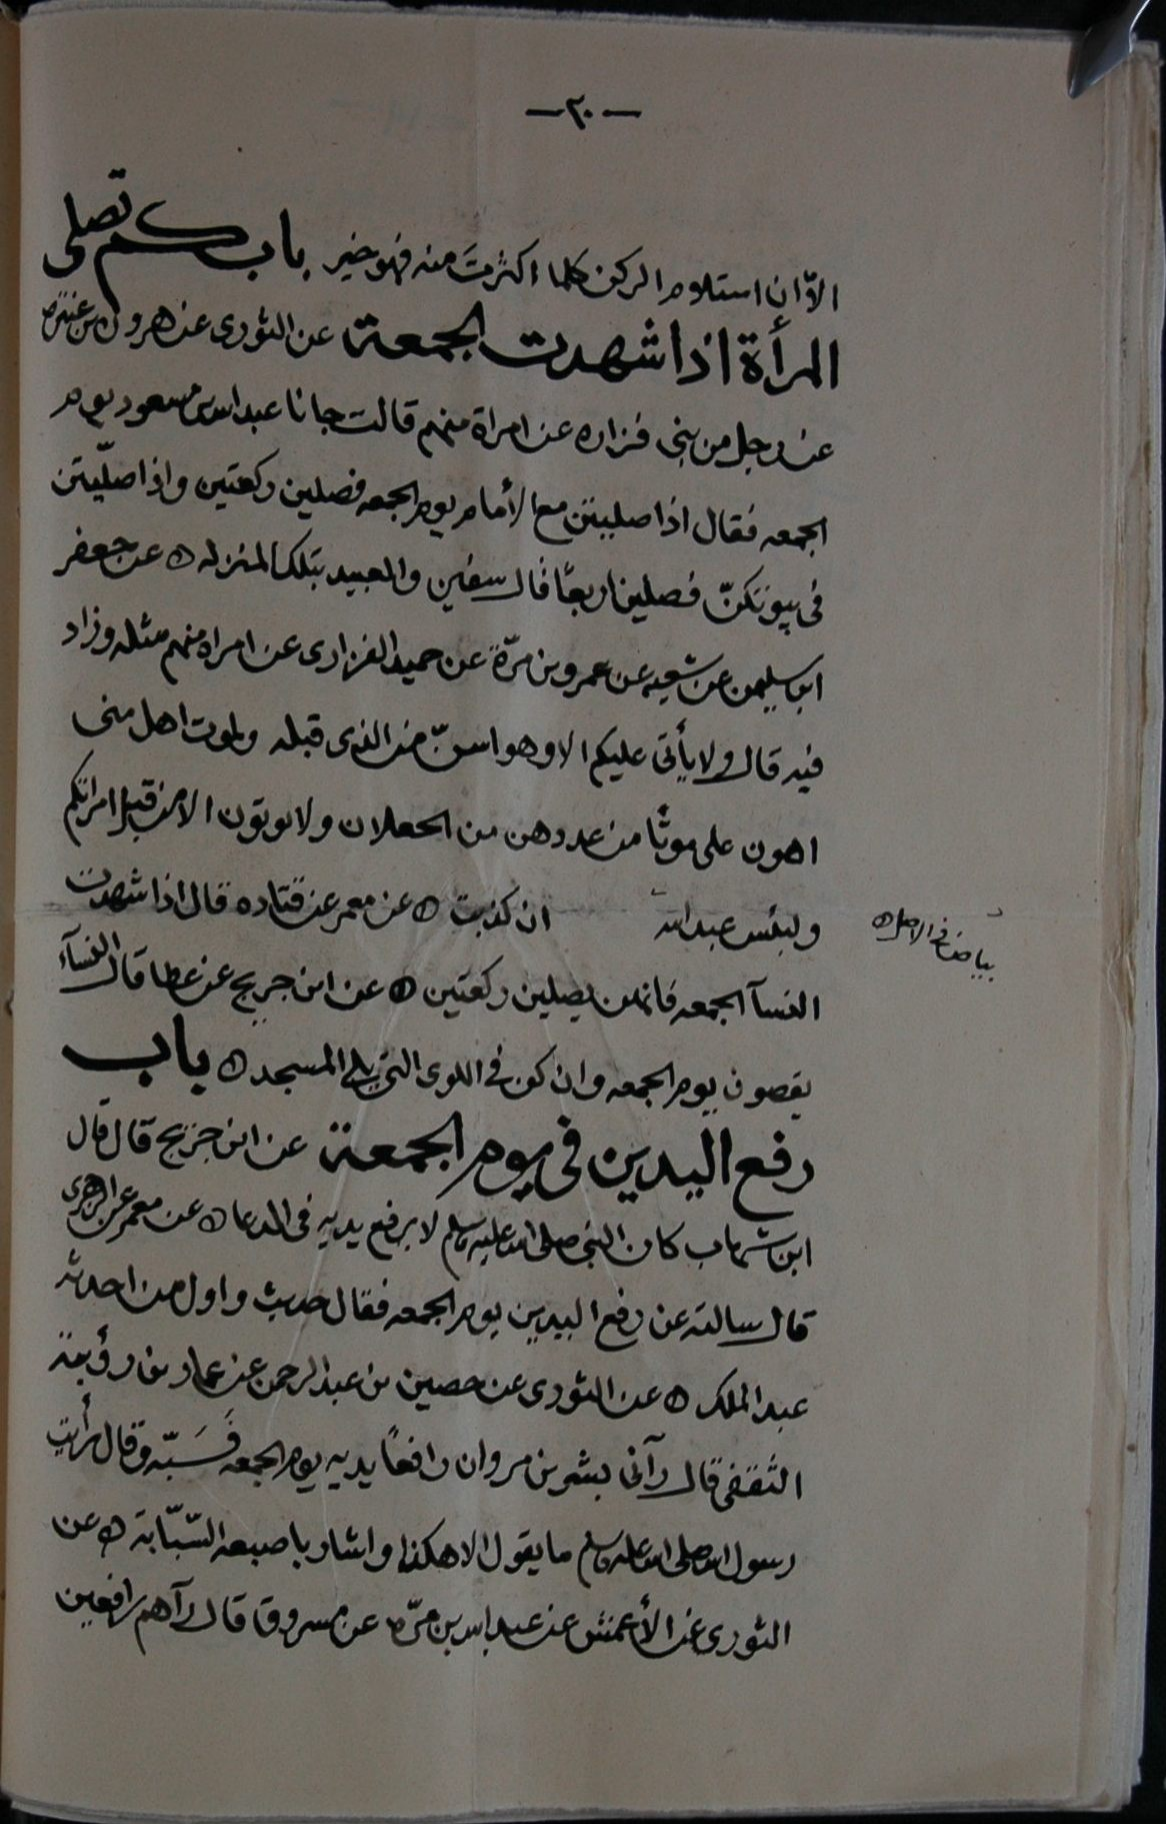 -٢٠-
الاّ ان استلام الركن كلما اكثرت منه فهو خير باب كم تصلى
المرأة اذا شهدت الجمعة عن الثورى عن هرون بن عنترة
عن رجل من بنى فزاره عن امراة منهم قالت جانا عبد الله بن مسعود يوم
الجمعه فقال اذا صليتن مع الأمام يوم الجمعه فصلين ركعتين واذا صلّيتن
فى بيوتكنّ فصلين اربعًا قال سفين والعبيد بتلك المنزله ه عن جعفر
ابن سليمن عن شعبه عن عمرو بن مرّة عن حميد الفزارى عن امراه منهم مثله وزاد
فيه قال ولا يأتى عليكم الا وهو اسرّ من الذى قبله ولموت اهل منى
اهون على موتًا من عددهن من الجعلان ولا يوتون الا من قبل امرائكم
ولبئس عبد الله ان كذبت ه عن معمر عن قتاده قال اذا شهدت
بياض فى الاصل ه
النسآ الجمعه فانهن يصلين ركعتين ه عن ابن جريج عن عطا قال النسآء
يقصون يوم الجمعه وان كن فى اللوى التى يلى المسجد ه باب
رفع اليدين فى يوم الجمعة عن ابن جريج قال قال
ابن شهاب كان النبى صلى الله عليه وسلم لا يرفع يديه فى الدعا ه عن معمر عن الزهرى
قال سالته عن رفع اليدين يوم الجمعه فقال حديث واول من احدثه
عبد الملك ه عن الثورى عن حصين بن عبد الرحمن عن عمار بن رؤيبة
الثقفى قال رآنى بشر بن مروان رافعًا يديه يوم الجمعه فَسَبّه وقال رأيت
رسول الله صلى الله عليه وسلم ما يقول الا هكذا واشار باصبعه السّبّابة ه عن
الثورى عن الأعمش عن عبد الله بن مرّه عن مسروقا قال رآهم رافعين